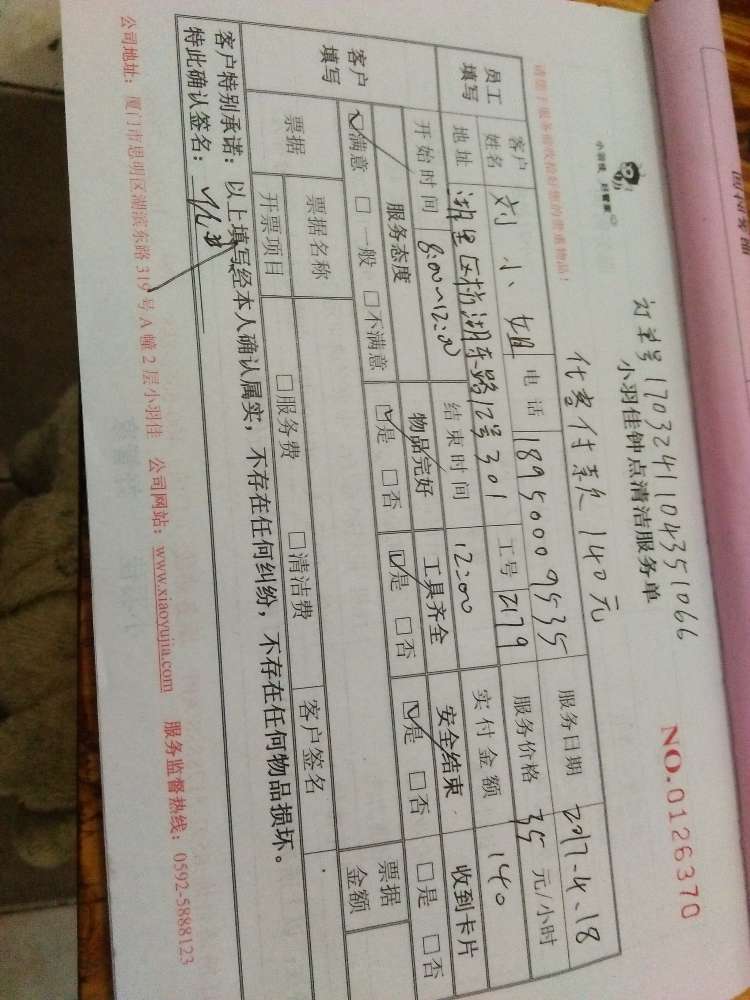 订单号1703241104351066
小羽佳 好管家
小羽佳钟点清洁服务单
NO.0126370
请阁下服务前收检好您的贵重物品!
代客付款 140元
员工填写
客户姓名 刘小姐 电话 18950009535 服务日期 2017.4.18
地址 湖里区枋湖东路12号301 工号 2179 服务价格 35 元/小时
开始时间 8:00~12:00 结束时间 12:00 实付金额 140
客户填写
服务态度 物品完好 工具齐全 安全结束 收到卡片
☑满意 □一般 □不满意 ☑是 □否 ☑是 □否 ☑是 □否 □是 □否
票据 票据名称 客户签名 票据金额
开票项目 □服务费 □清洁费
客户特别承诺:以上填写经本人确认属实,不存在任何纠纷,不存在任何物品损坏。
特此确认签名:
公司地址:厦门市思明区湖滨东路319号A幢2层小羽佳 公司网站:www.xiaoyujia.com 服务监督热线:0592-5888123